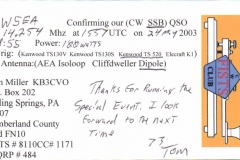 W5EA Confirming our (CW SSB) QSO
14,254 Mhz at 1557 UTC on 24 May 2003
:55 Power: 100 watts
(Kenwood TS130V Kenwood TS130S Kenwood TS 520 Elecraft K1)
Antenna:(AEA Isoloop Cliffdweller Dipole)
Miller KB3CVO
Box 202
ling Springs, PA
007
mberland County
d FN10
TS # 8110CC# 1171
QRP # 484
Thanks for Running the
Special Event. I look
forward to the next
Time
73
Tom
CLUB